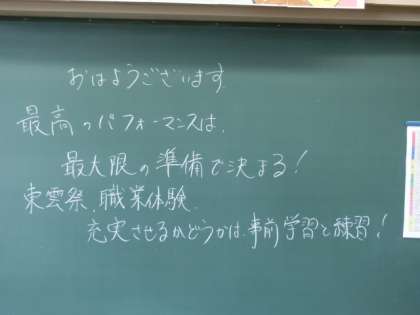 おはようございます
最高のパフォーマンスは、
最大限の準備で決まる！
東雲祭、職業体験、
充実させるかどうかは、事前学習と練習！